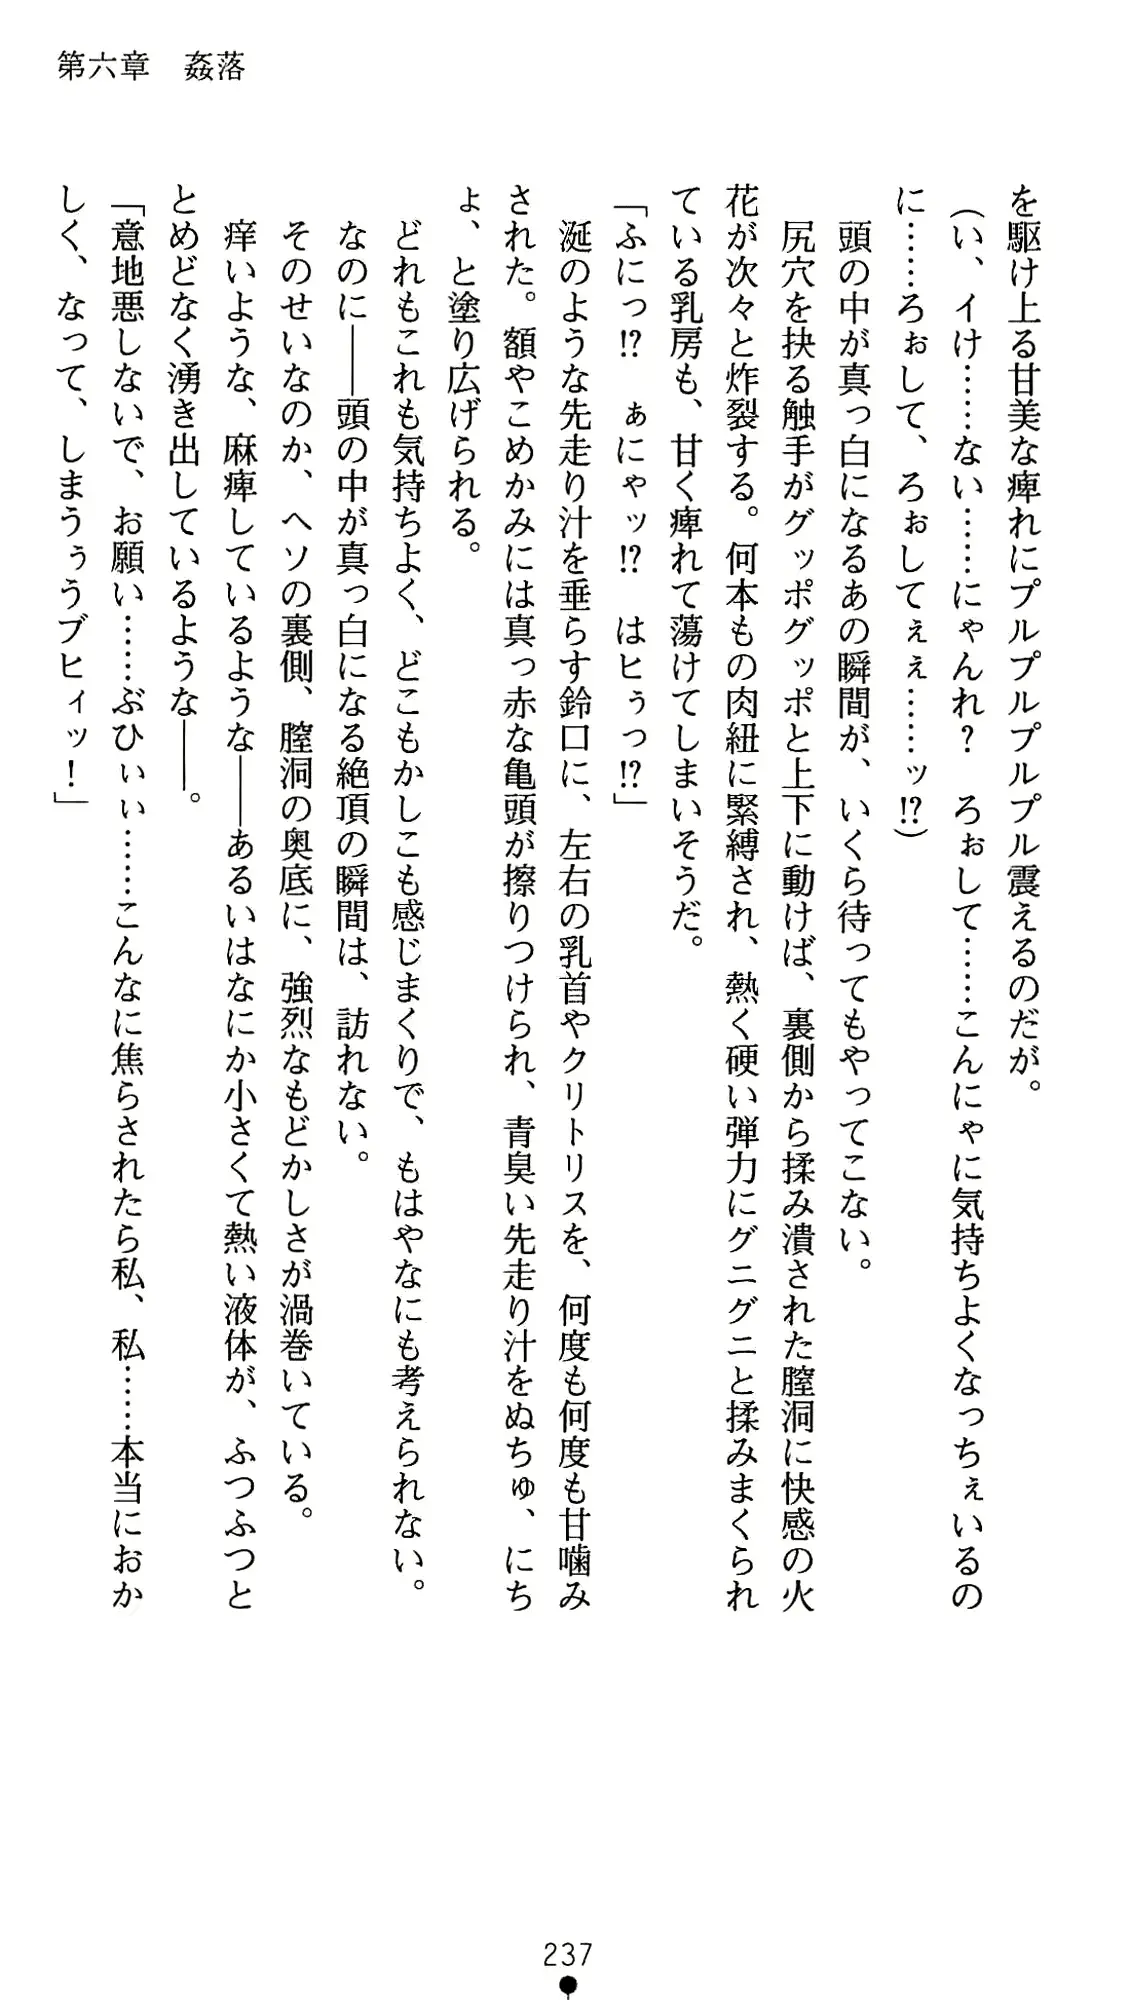 第六章　姦落
を駆け上る甘美な痺れにプルプルプルプル震えるのだが。
（い、イけ……ない……にゃんれ？　ろぉして……こんにゃに気持ちよくなっちぇいるの
に……ろぉして、ろぉしてぇぇ……ッ!?）
　頭の中が真っ白になるあの瞬間が、いくら待ってもやってこない。
　尻穴を抉る触手がグッポグッポと上下に動けば、裏側から揉み潰された膣洞に快感の火
花が次々と炸裂する。何本もの肉紐に緊縛され、熱く硬い弾力にグニグニと揉みまくられ
ている乳房も、甘く痺れて蕩けてしまいそうだ。
「ふにっ!?　ぁにゃッ!?　はヒぅっ!?」
　涎のような先走り汁を垂らす鈴口に、左右の乳首やクリトリスを、何度も何度も甘噛み
された。額やこめかみには真っ赤な亀頭が擦りつけられ、青臭い先走り汁をぬちゅ、にち
ょ、と塗り広げられる。
　どれもこれも気持ちよく、どこもかしこも感じまくりで、もはやなにも考えられない。
　なのに――頭の中が真っ白になる絶頂の瞬間は、訪れない。
　そのせいなのか、ヘソの裏側、膣洞の奥底に、強烈なもどかしさが渦巻いている。
　痒いような、麻痺しているような――あるいはなにか小さくて熱い液体が、ふつふつと
とめどなく湧き出しているような――。
「意地悪しないで、お願い……ぶひぃぃ……こんなに焦らされたら私、私……本当におか
しく、なって、しまうぅうブヒィッ！」
237